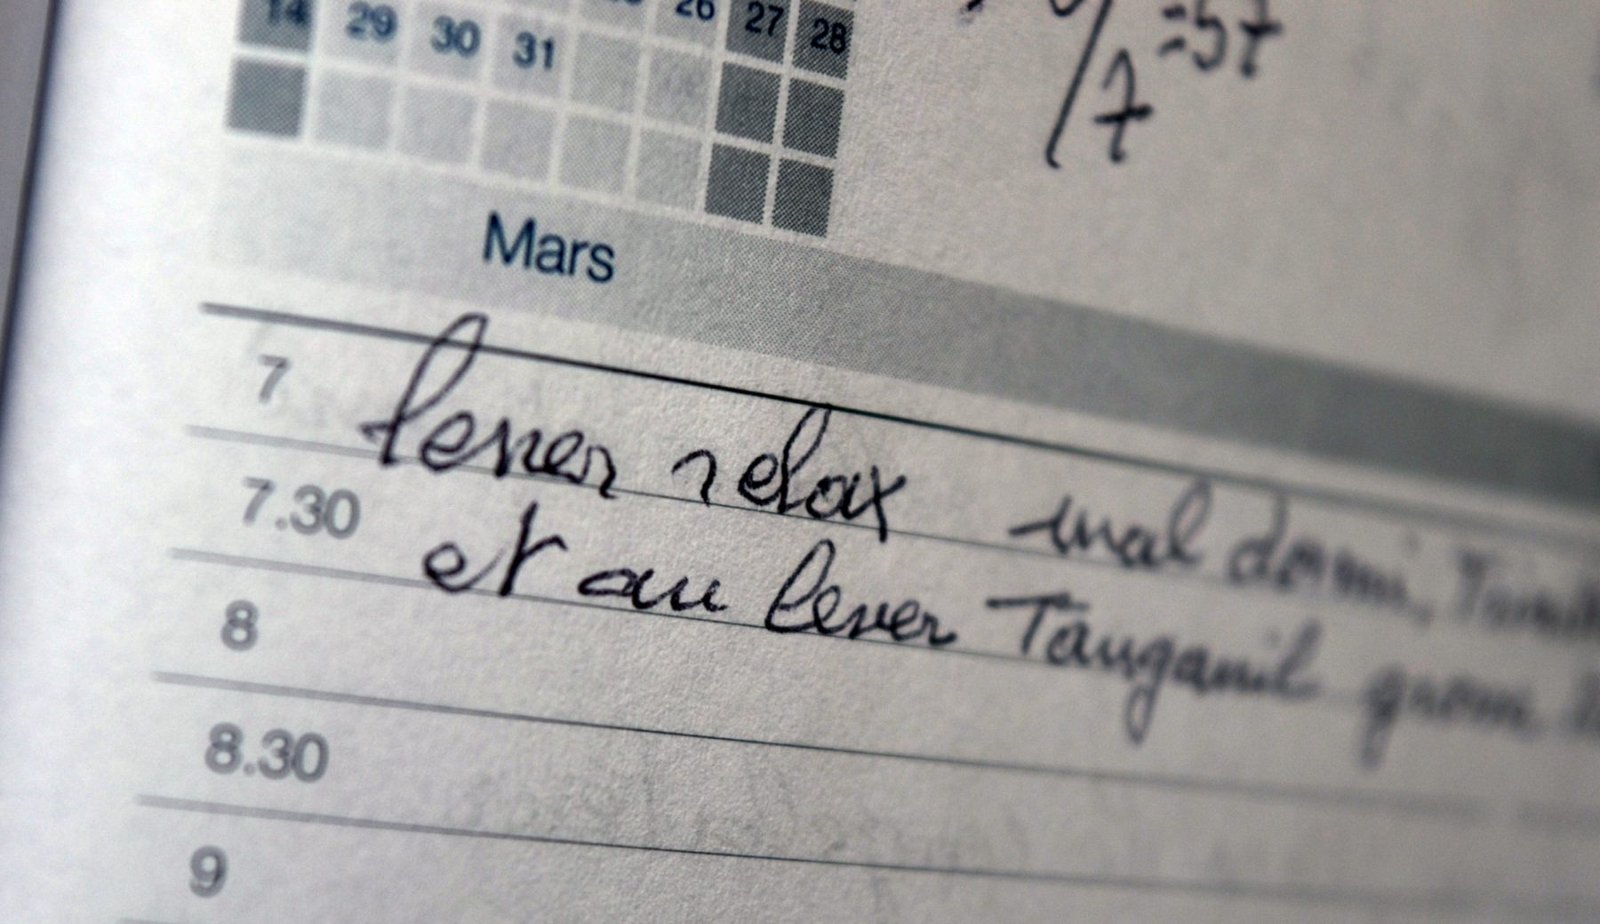 26 27 28
14 29 30 31
=57
7
Mars
7 lever relax mal dormi,
7.30 et au lever Tanganil
8
8.30
9